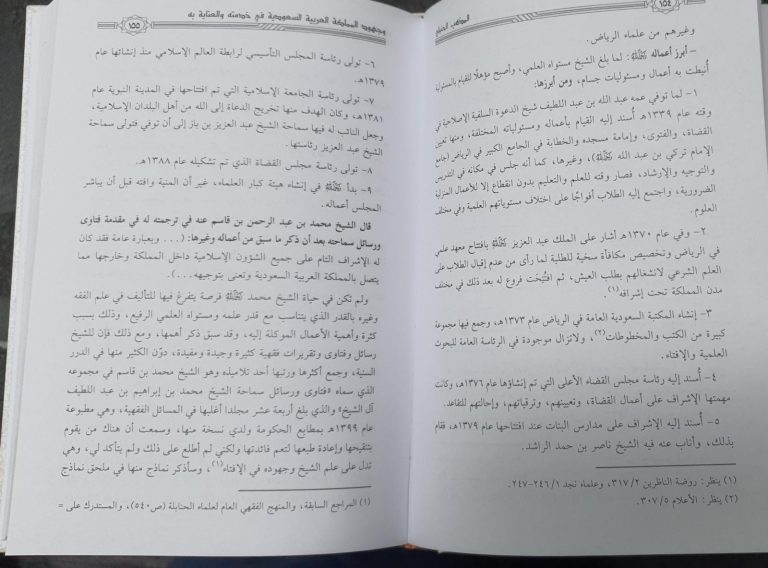 ١٥٤
المذهب الحنبلي
وغيرهم من علماء الرياض.
- أبرز أعماله ﷺ: لما بلغ الشيخ مستواه العلمي، وأصبح مؤهلًا للقيام بالمسئولية
أنيطت به أعمال ومسئوليات جسام، ومن أبرزها:
١- لما توفي عمه عبد الله بن عبد اللطيف شيخ الدعوة السلفية الإصلاحية في
وقته عام ١٣٣٩هـ أُسند إليه القيام بأعماله ومسئولياته المختلفة، ومنها تعيين
القضاة، والفتوى، وإمامة مسجده والخطابة في الجامع الكبير في الرياض (جامع
الإمام تركي بن عبد الله)، وغيرها، كما أنه جلس في مكانه في التدريس
والتوجيه والإرشاد، فصار وقته للعلم والتعليم بدون انقطاع إلا للأعمال المنزلية
الضرورية، واجتمع إليه الطلاب أفواجًا على اختلاف مستوياتهم العلمية وفي مختلف
العلوم.
٢- وفي عام ١٣٧٠هـ أشار على الملك عبد العزيز بافتتاح معهد علمي
في الرياض وتخصيص مكافأة سخية للطلبة لما رأى من عدم إقبال الطلاب على
العلم الشرعي لانشغالهم بطلب العيش، ثم افتُتحت فروع له بعد ذلك في مختلف
مدن المملكة تحت إشرافه(١).
٣- إنشاء المكتبة السعودية العامة في الرياض عام ١٣٧٣هـ، وجمع فيها مجموعة
كبيرة من الكتب والمخطوطات(٢)، ولاتزال موجودة في الرئاسة العامة للبحوث
العلمية والإفتاء.
٤- أُسند إليه رئاسة مجلس القضاء الأعلى التي تم إنشاؤها عام ١٣٧٦هـ، وكانت
مهمتها الإشراف على أعمال القضاة، وتعيينهم، وترقياتهم، وإحالتهم للتقاعد.
٥- أُسند إليه الإشراف على مدارس البنات عند افتتاحها عام ١٣٧٩هـ، فقام
بذلك، وأناب عنه فيه الشيخ ناصر بن حمد الراشد.
(١) ينظر: روضة الناظرين ٣١٧/٢، وعلماء نجد ٢٤٦/١-٢٤٧.
(٢) ينظر: الأعلام ٣٠٧/٥.
وجهود المملكة العربية السعودية في خدمته والعناية به
١٥٥
٦- تولى رئاسة المجلس التأسيسي لرابطة العالم الإسلامي منذ إنشائها عام
١٣٧٩هـ.
٧- تولى رئاسة الجامعة الإسلامية التي تم افتتاحها في المدينة النبوية عام
١٣٨١هـ، وكان الهدف منها تخريج الدعاة إلى الله من أهل البلدان الإسلامية،
وجعل النائب له فيها سماحة الشيخ عبد العزيز بن باز إلى أن توفي فتولى سماحة
الشيخ عبد العزيز رئاستها.
٨- تولى رئاسة مجلس القضاة الذي تم تشكيله عام ١٣٨٨هـ.
٩- بدأ في إنشاء هيئة كبار العلماء، غير أن المنية وافته قبل أن يباشر
المجلس أعماله.
قال الشيخ محمد بن عبد الرحمن بن قاسم عنه في ترجمته له في مقدمة فتاوى
ورسائل سماحته بعد أن ذكر ما سبق من أعماله وغيرها: (... وبعبارة عامة فقد كان
له الإشراف التام على جميع الشؤون الإسلامية داخل المملكة وخارجها مما
يتصل بالمملكة العربية السعودية وتعنى بتوجيهه...).
ولم تكن في حياة الشيخ محمد فرصة يتفرغ فيها للتأليف في علم الفقه
وغيره بالقدر الذي يتناسب مع قدر علمه ومستواه العلمي الرفيع، وذلك بسبب
كثرة وأهمية الأعمال الموكلة إليه، وقد سبق ذكر أهمها، ومع ذلك فإن للشيخ
رسائل وفتاوى وتقريرات فقهية كثيرة وجيدة ومفيدة، دوّن الكثير منها في الدرر
السنية، وجمع أكثرها ورتبها أحد تلاميذه وهو الشيخ محمد بن قاسم في مجموعه
الذي سماه «فتاوى ورسائل سماحة الشيخ محمد بن إبراهيم بن عبد اللطيف
آل الشيخ» والذي بلغ أربعة عشر مجلدا أغلبها في المسائل الفقهية، وهي مطبوعة
عام ١٣٩٩هـ بمطابع الحكومة ولدي نسخة منها، وسمعت أن هناك من يقوم
بتنقيحها وإعادة طبعها لتعم فائدتها ولكني لم أطلع على ذلك ولم يتأكد لي، وهي
تدل على علم الشيخ وجهوده في الإفتاء(١)، وسأذكر نماذج منها في ملحق نماذج
(١) المراجع السابقة، والمنهج الفقهي العام لعلماء الحنابلة (ص٥٤٠)، والمستدرك على =